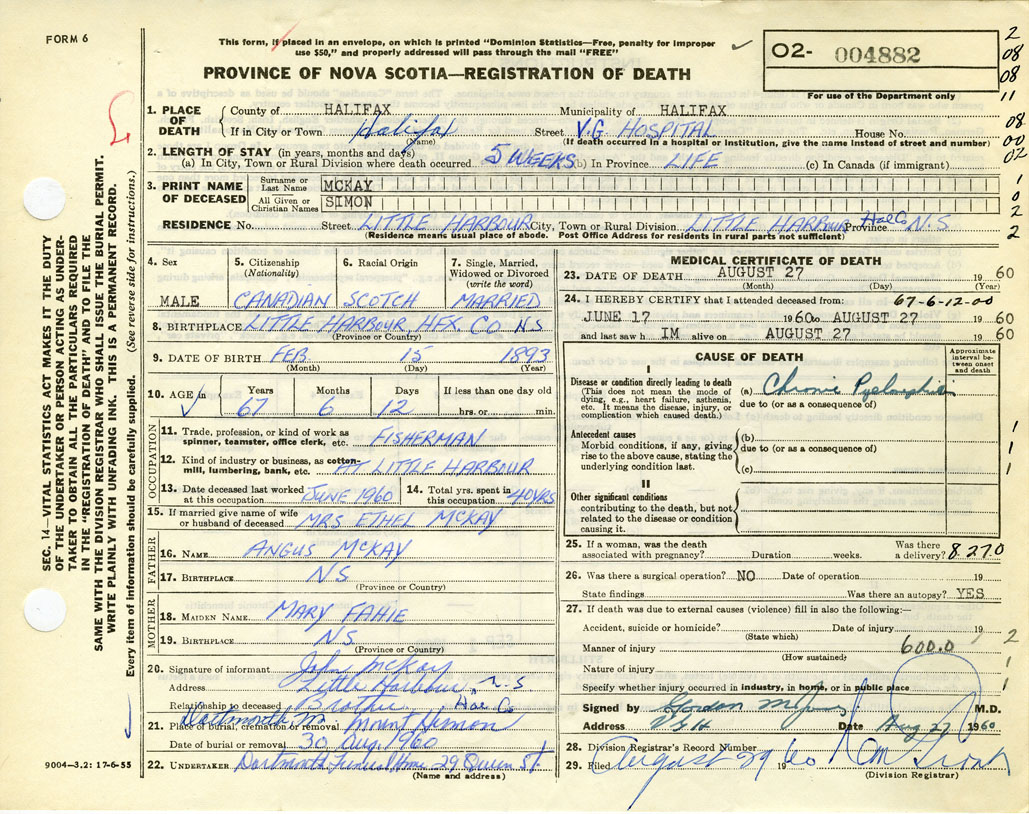 FORM 6
This form, if placed in an envelope, on which is printed "Dominion Statistics—Free, penalty for improper
use $50," and properly addressed will pass through the mail "FREE"
PROVINCE OF NOVA SCOTIA—REGISTRATION OF DEATH
02- 004882
For use of the Department only
2
08
08
11
08
00
02
1
0
2
2
SEC. 14—VITAL STATISTICS ACT MAKES IT THE DUTY
OF THE UNDERTAKER OR PERSON ACTING AS UNDER-
TAKER TO OBTAIN ALL THE PARTICULARS REQUIRED
IN THE "REGISTRATION OF DEATH" AND TO FILE THE
SAME WITH THE DIVISION REGISTRAR WHO SHALL ISSUE THE BURIAL PERMIT.
WRITE PLAINLY WITH UNFADING INK. THIS IS A PERMANENT RECORD.
Every item of information should be carefully supplied. (See reverse side for instructions.)
1. PLACE OF DEATH
County of HALIFAX Municipality of HALIFAX
If in City or Town Halifax Street V.G. HOSPITAL House No.
(Name) (If death occurred in a hospital or institution, give the name instead of street and number)
2. LENGTH OF STAY (in years, months and days)
(a) In City, Town or Rural Division where death occurred 5 WEEKS (b) In Province LIFE (c) In Canada (if immigrant)
3. PRINT NAME OF DECEASED
Surname or Last Name MCKAY
All Given or Christian Names SIMON
RESIDENCE No. Street LITTLE HARBOUR City, Town or Rural Division LITTLE HARBOUR Hal Co Province N.S.
(Residence means usual place of abode. Post Office Address for residents in rural parts not sufficient)
4. Sex MALE
5. Citizenship (Nationality) CANADIAN
6. Racial Origin SCOTCH
7. Single, Married, Widowed or Divorced (write the word) MARRIED
8. BIRTHPLACE LITTLE HARBOUR, HFX. CO N.S
(Province or Country)
9. DATE OF BIRTH FEB. 15 1893
(Month) (Day) (Year)
10. AGE in Years Months Days If less than one day old
67 6 12 hrs. or min.
OCCUPATION
11. Trade, profession, or kind of work as spinner, teamster, office clerk, etc. FISHERMAN
12. Kind of industry or business, as cotton-mill, lumbering, bank, etc. AT LITTLE HARBOUR
13. Date deceased last worked at this occupation JUNE 1960
14. Total yrs. spent in this occupation 40 YRS
15. If married give name of wife or husband of deceased MRS ETHEL MCKAY
FATHER
16. NAME ANGUS MCKAY
17. BIRTHPLACE N.S.
(Province or Country)
MOTHER
18. MAIDEN NAME MARY FAHIE
19. BIRTHPLACE N.S.
(Province or Country)
20. Signature of informant John McKay
Address Little Harbour, N.S
Relationship to deceased Brother Hal Co
21. Place of burial, cremation or removal Mount Hermon
Dartmouth
Date of burial or removal 30 Aug. 1960
22. UNDERTAKER Dartmouth Funeral Home 29 Queen St.
(Name and address)
9004—3.2: 17-6-55
MEDICAL CERTIFICATE OF DEATH
23. DATE OF DEATH AUGUST 27 1960
(Month) (Day) (Year)
24. I HEREBY CERTIFY that I attended deceased from: 67-6-12-00
JUNE 17 1960 to AUGUST 27 1960
and last saw h IM alive on AUGUST 27 1960
CAUSE OF DEATH
Approximate interval between onset and death
I
Disease or condition directly leading to death
(This does not mean the mode of dying, e.g., heart failure, asthenia, etc. It means the disease, injury, or complication which caused death.)
(a) Chronic
due to (or as a consequence of)
Antecedent causes
Morbid conditions, if any, giving rise to the above cause, stating the underlying condition last.
(b)
due to (or as a consequence of)
(c)
1
1
1
II
Other significant conditions contributing to the death, but not related to the disease or condition causing it.
25. If a woman, was the death associated with pregnancy? Duration weeks. Was there a delivery? 8270
26. Was there a surgical operation? NO Date of operation 19
State findings Was there an autopsy? YES
27. If death was due to external causes (violence) fill in also the following:—
Accident, suicide or homicide? Date of injury 19
(State which)
2
Manner of injury 600.0 1
(How sustained)
Nature of injury 1
Specify whether injury occurred in industry, in home, or in public place 1
Signed by Gordon M.D.
Address V G H Date Aug 27 1960
28. Division Registrar's Record Number
29. Filed August 29 1960
(Division Registrar)